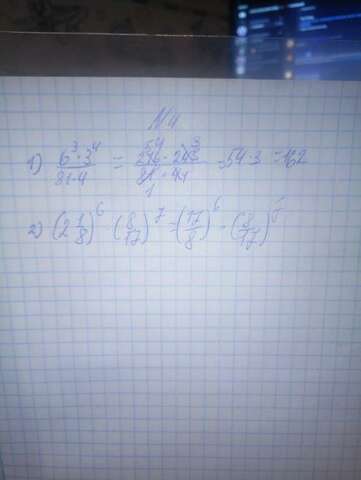 N4
1) 6³·3⁴ / 81·4 = 216·243 / 81·4 = 54·3 = 162
2) (2 1/8)⁶ (8/17)⁷ = (17/8)⁶ · (8/17)⁷